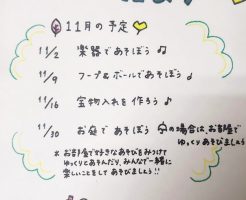 11月の予定
11/2 楽器であそぼう♫
11/9 フープ&ボールであそぼう♪
11/16 宝物入れを作ろう♪
11/30 お庭であそぼう の場合は、お部屋で
ゆっくりあそびましょう
* お部屋で好きなあそびをみつけて
ゆっくりとあそんだり、みんなで一緒に
楽しいことをしてあそびましょう!!